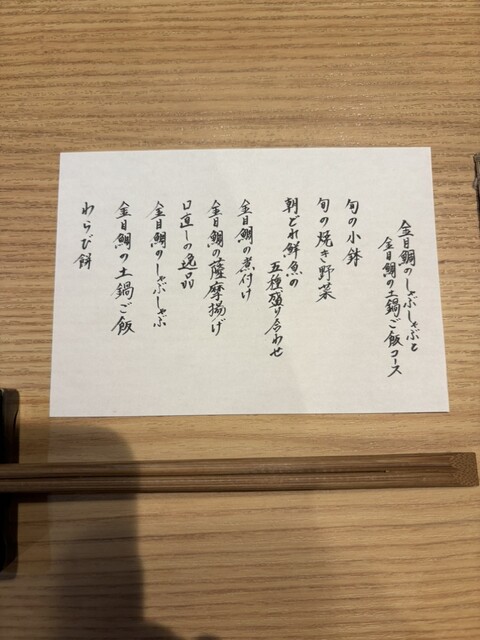 金目鯛のしゃぶしゃぶと
金目鯛の土鍋ご飯コース
旬の小鉢
旬の焼き野菜
朝どれ鮮魚の
五種盛り合わせ
金目鯛の煮付け
金目鯛の薩摩揚げ
口直しの逸品
金目鯛のしゃぶしゃぶ
金目鯛の土鍋ご飯
わらび餅